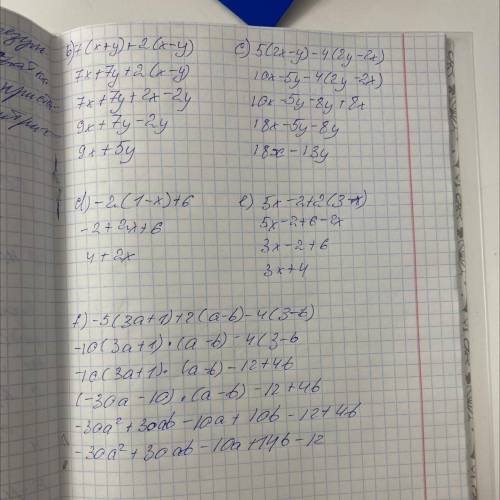 b) 7(x+y)+2(x-y)
7x+7y+2(x-y)
7x+7y+2x-2y
9x+7y-2y
9x+5y
c) 5(2x-y)-4(2y-2x)
10x-5y-4(2y-2x)
10x-5y-8y+8x
18x-5y-8y
18x-13y
d) -2(1-x)+6
-2+2x+6
4+2x
e) 5x-2+2(3-x)
5x-2+6-2x
3x-2+6
3x+4
f) -5(3a+1)+2(a-b)-4(3-b)
-10(3a+1)·(a-b)-4(3-b
-10(3a+1)·(a-b)-12+4b
(-30a-10)·(a-b)-12+4b
-30a²+30ab-10a+10b-12+4b
-30a²+30ab-10a+14b-12